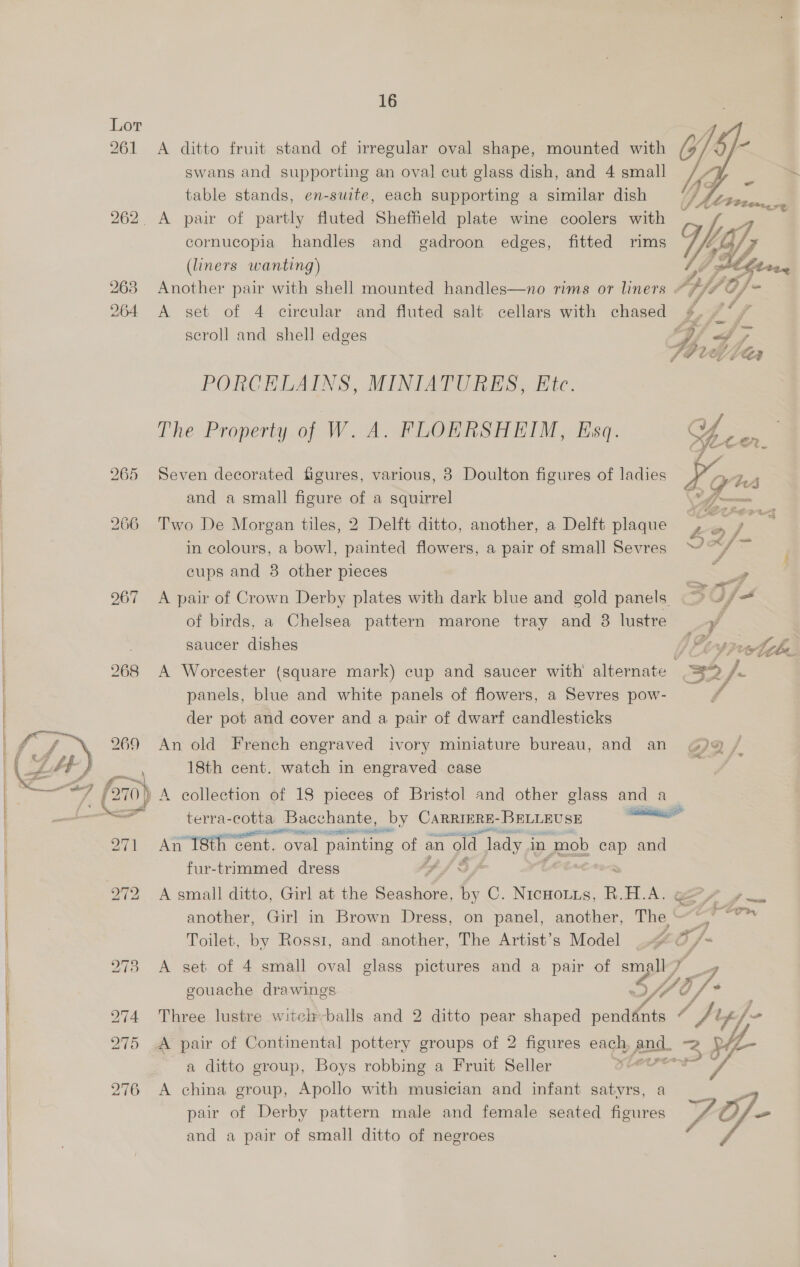 16
Lot
261 A ditto fruit stand of irregular oval shape, mounted with
swans and supporting an oval cut glass dish, and 4 small
table stands, en-suite, each supporting a similar dish
262 A pair of partly fluted Sheffield plate wine coolers with
cornucopia handles and gadroon edges, fitted rims
(liners wanting)
263 Another pair with shell mounted handles—no rims or liners
264 A set of 4 circular and fluted salt cellars with chased
scroll and shell edges
PORCELAINS, MINIATURES, Etc.
The Property of W. A. FLOERSHEIM, Esq.
265 Seven decorated figures, various, 3 Doulton figures of ladies
and a small figure of a squirrel
266 Two De Morgan tiles, 2 Delft ditto, another, a Delft plaque
in colours, a bowl, painted flowers, a pair of small Sevres
cups and 3 other pieces
267 A pair of Crown Derby plates with dark blue and gold panels 30/-
of birds, a Chelsea pattern marone tray and 3 lustre
saucer dishes
268 A Worcester (square mark) cup and saucer with alternate 32/-
panels, blue and white panels of flowers, a Sevres pow-
der pot and cover and a pair of dwarf candlesticks
269 An old French engraved ivory miniature bureau, and an
18th cent. watch in engraved case
270 A collection of 18 pieces of Bristol and other glass and a
terra-cotta Bacchante, by CARRIERE-BELLEUSE
271 An 18th cent. oval painting of an old lady in mob cap and
fur-trimmed dress
272 A small ditto, Girl at the Seashore, by C. NICHOLLS, R.H.A.
another, Girl in Brown Dress, on panel, another, The
Toilet, by ROSSI, and another, The Artist's Model
273 A set of 4 small oval glass pictures and a pair of small
gouache drawings
274 Three lustre witch-balls and 2 ditto pear shaped pendants
275 A pair of Continental pottery groups of 2 figures each, and
a ditto group, Boys robbing a Fruit Seller
276 A china group, Apollo with musician and infant satyrs, a
pair of Derby pattern male and female seated figures 70/-
and a pair of small ditto of negroes